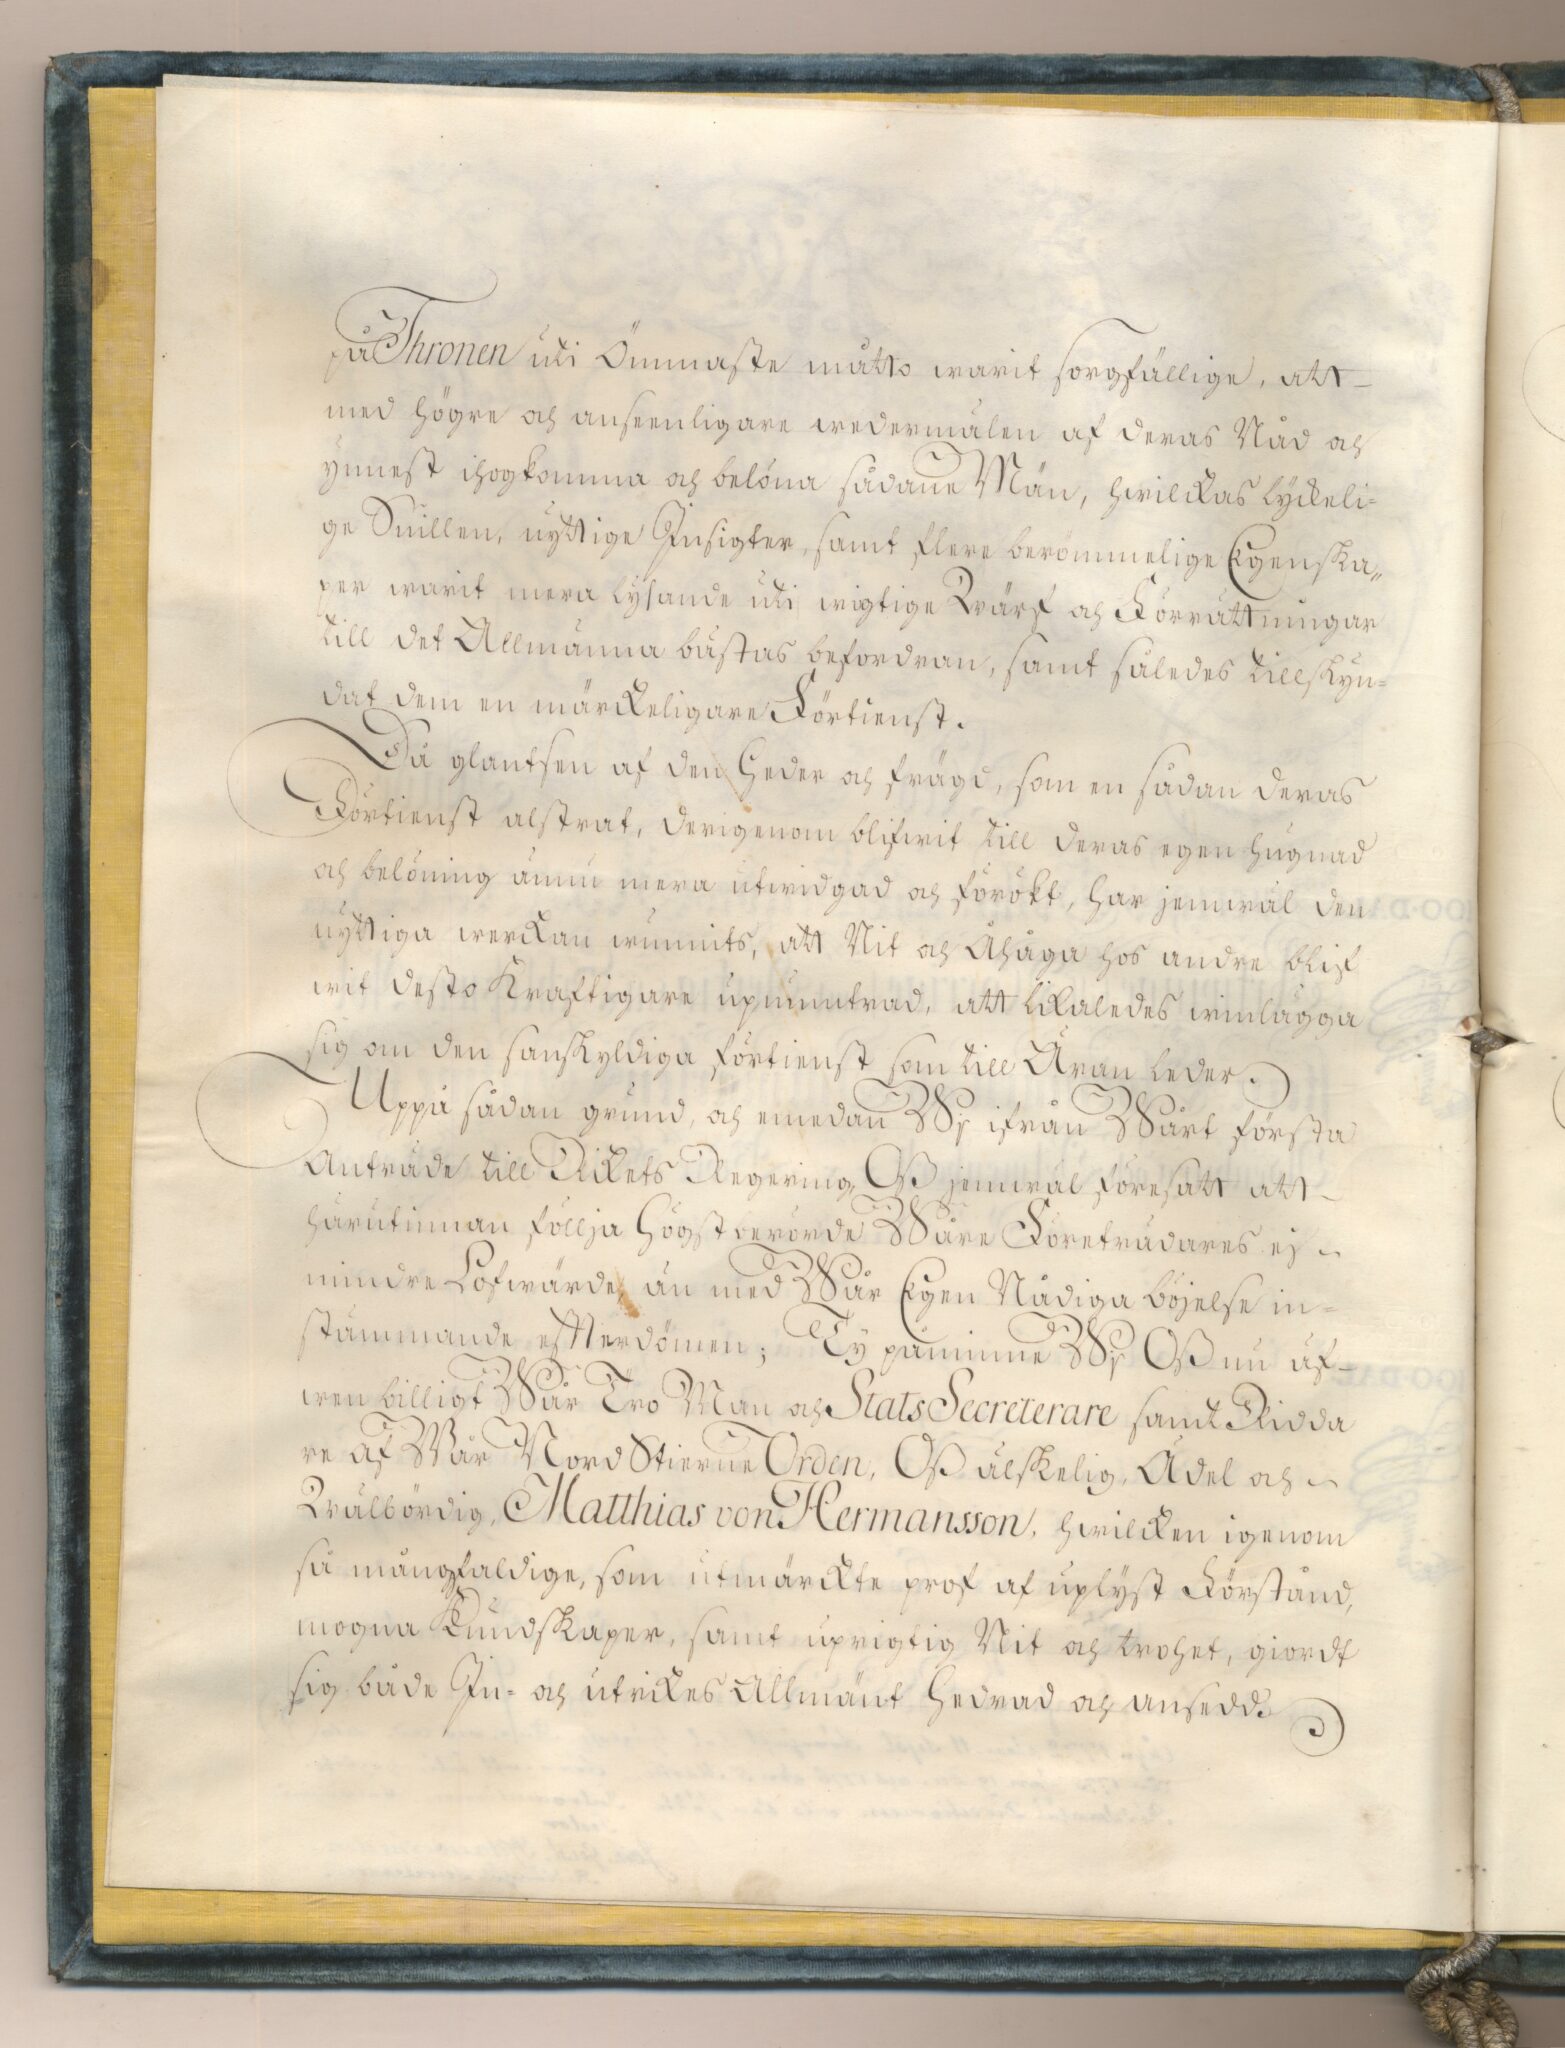 på Thronen uti Ömmaste måtto warit sorgfällige, att
med högre och anseenligare wedermälen af deras Nåd och
ynnest ihogkomma och belöna sådane Män, hwilckas lyckeli-
ge Snillen, nyttige Insigter, samt flere berömmelige Egenska-
per warit mera lysande uti wigtige Wärf och Förrättningar
till det Allmänna bästas befordran, samt således tillskyn-
dat dem en märckeligare Förtienst.
Då glantsen af den Heder och frägd, som en sådan deras
Förtienst alstrat, derigenom blifwit till deras egen hugnad
och belöning ännu mera utwidgad och förökt, har jemwäl den
nyttiga werckan wunnits, att Nit och Åhåga hos andre blif
wit desto Kraftigare upmuntrad, att likaledes winlägga
sig om den sanskyldiga förtienst som till Äran leder.
Uppå sådan grund, och emedan Wij ifrån Wårt första
Anträde till Rikets Regering Oß jemwäl föresatt att
härutinnan föllja Högstberörde Wåre Företrädares ej
mindre Lofwärde, än med Wår Egen Nådiga böjelse in-
stämmande efterdömen; Ty påminne Wij Oß nu äf-
wen billigt Wår Tro Man och Stats Secreterare samt Ridda
re af Wår Nord Stierne Orden, Oß älskelig, Ädel och
Wälbördig, Matthias von Hermansson, hwilcken igenom
så mångfaldige, som utmärckte prof af uplyst Förstånd,
mogna Kundskaper, samt uprigtig Nit och trohet, giordt
sig både In- och utrikes Allmänt Hedrad och ansedd.